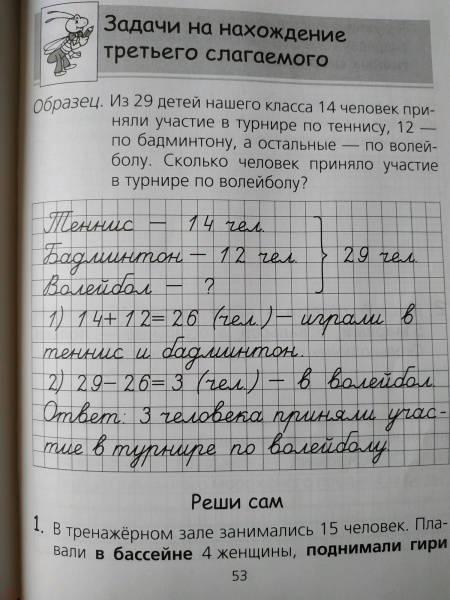 Задачи на нахождение
третьего слагаемого
Образец. Из 29 детей нашего класса 14 человек при-
няли участие в турнире по теннису, 12 —
по бадминтону, а остальные — по волей-
болу. Сколько человек приняло участие
в турнире по волейболу?
Теннис — 14 чел.
Бадминтон — 12 чел. } 29 чел.
Волейбол — ?
1) 14+12=26 (чел.) — играли в
теннис и бадминтон.
2) 29-26=3 (чел.) — в волейбол.
Ответ: 3 человека приняли учас-
тие в турнире по волейболу.
Реши сам
1. В тренажёрном зале занимались 15 человек. Пла-
вали в бассейне 4 женщины, поднимали гири
53